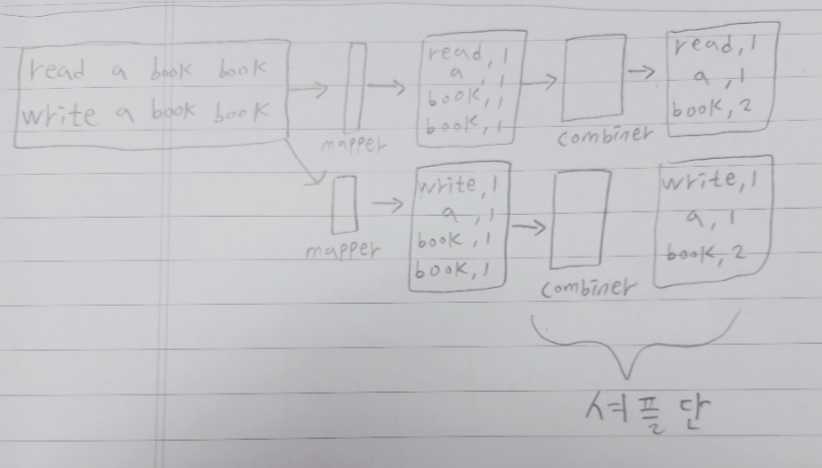 read a book book
write a book book
mapper
read, 1
a, 1
book, 1
book, 1
combiner
read, 1
a, 1
book, 2
mapper
write, 1
a, 1
book, 1
book, 1
combiner
write, 1
a, 1
book, 2
셔플 단